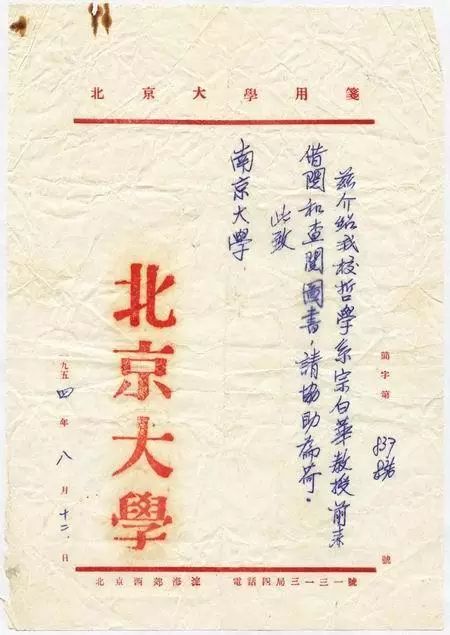 北京大學用箋
簡字第 號
兹介紹我校哲學系宗白華教授前来
借閱和查閱圖書，請協助為荷。
此致
南京大學
北京大學
一九五四年八月十二日
北京西郊海淀 電話四局三一三一號